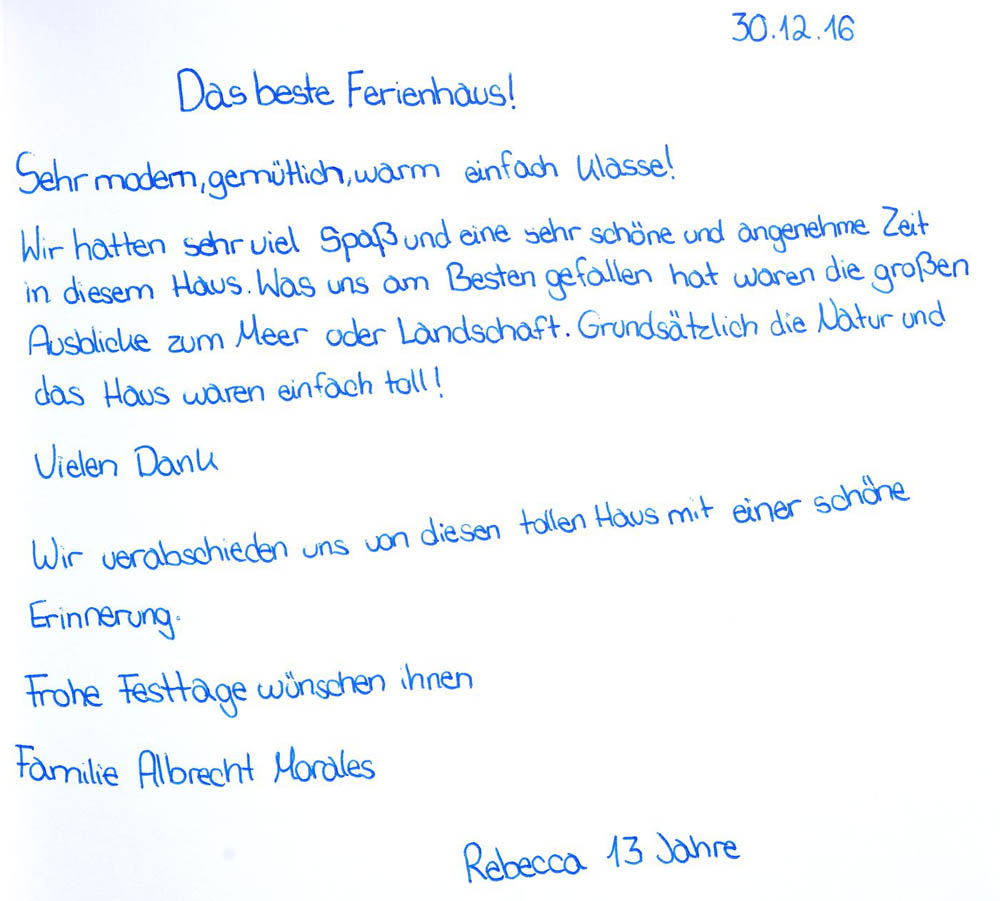 30.12.16
Das beste Ferienhaus!
Sehr modern, gemütlich, warm einfach klasse!
Wir hatten sehr viel Spaß und eine sehr schöne und angenehme Zeit
in diesem Haus. Was uns am Besten gefallen hat waren die großen
Ausblicke zum Meer oder Landschaft. Grundsätzlich die Natur und
das Haus waren einfach toll!
Vielen Dank
Wir verabschieden uns von diesen tollen Haus mit einer schöne
Erinnerung.
Frohe Festtage wünschen ihnen
Familie Albrecht Morales
Rebecca 13 Jahre